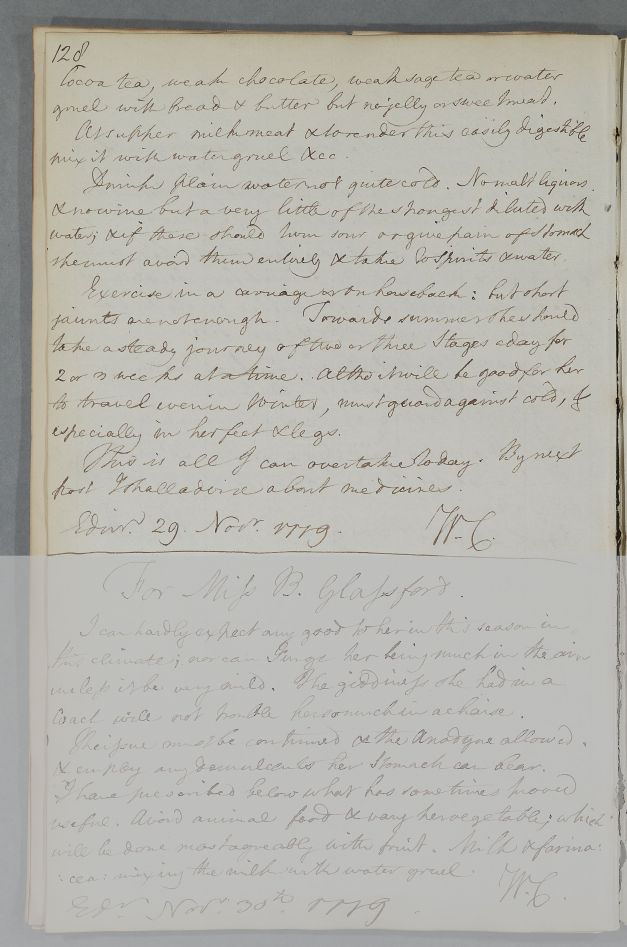 128
Cocoa tea, weak chocolate, weak sage tea or water
gruel with bread & butter but no jelly or sweetmeat.
At supper milkmeat & to render this easily digestible
mix it with water gruel &cc.
Drink plain water not quite cold. No malt liquors
& no wine but a very little of the strongest diluted with
water; & if these should turn sour or give pain of stomach
she must avoid them entirely & take to spirits & water.
Exercise in a carriage or on horseback: but short
jaunts are not enough. Towards summer she should
take a steady journey of two or three Stages a day for
2 or 3 weeks at a time. Altho it will be good for her
to travel even in Winter, must guard against cold, &
especially in her feet & legs.
This is all I can overtake today. By next
post I shall advise about medicines.
Edinr. 29. Novr. 1779. W. C.
For Miss B. Glassford.
I can hardly expect any good to her in this season in
this climate; nor can I urge her being much in the air
unless it be very mild. The giddiness she had in a
Coach will not trouble her so much in a chaise.
The issue must be continued & the Anodyne allowed.
& employ any demulcents her Stomach can bear.
I have prescribed below what has sometimes proved
useful. Avoid animal food & vary her vegetable; which
will be done most agreeably with fruit. Milk & farina:
:cea: mixing the milk with water gruel.
W. C.
Edr. Novr. 30th. 1779